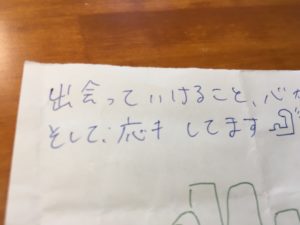 出会っていけること、心か
そして、応キ してます